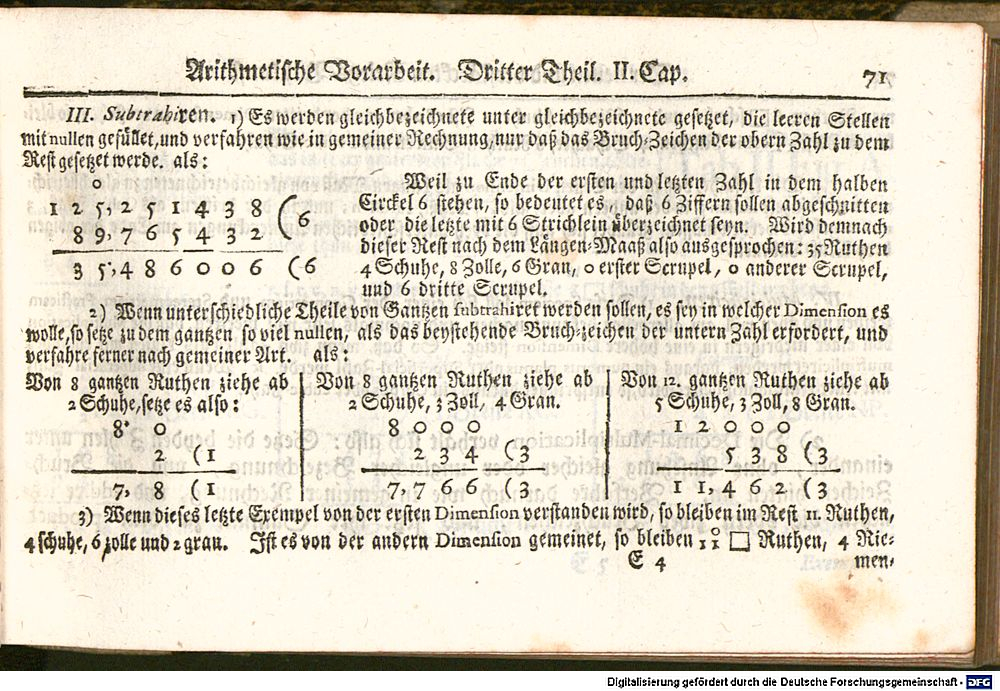 Arithmetische Vorarbeit. Dritter Theil. II. Cap. 71
III. Subtrahiren. 1) Es werden gleichbezeichnete unter gleichbezeichnete gesetzet, die leeren Stellen
mit nullen gefüllet, und verfahren wie in gemeiner Rechnung, nur daß das Bruch-Zeichen der obern Zahl zu dem
Rest gesetzet werde. als:
0
1 2 5, 2 5 1 4 3 8 (6
8 9, 7 6 5 4 3 2
3 5, 4 8 6 0 0 6 (6
Weil zu Ende der ersten und letzten Zahl in dem halben
Circkel 6 stehen, so bedeutet es, daß 6 Ziffern sollen abgeschnitten
oder die letzte mit 6 Strichlein überzeichnet seyn. Wird demnach
dieser Rest nach dem Längen-Maaß also ausgesprochen: 35 Ruthen
4 Schuhe, 8 Zolle, 6 Gran, 0 erster Scrupel, 0 anderer Scrupel,
und 6 dritte Scrupel.
2) Wenn unterschiedliche Theile von Gantzen subtrahiret werden sollen, es sey in welcher Dimension es
wolle, so setze zu dem gantzen so viel nullen, als das beystehende Bruch-zeichen der untern Zahl erfordert, und
verfahre ferner nach gemeiner Art. als:
Von 8 gantzen Ruthen ziehe ab
2 Schuhe, setze es also:
8 0
2 (1
7, 8 (1
Von 8 gantzen Ruthen ziehe ab
2 Schuhe, 3 Zoll, 4 Gran.
8 0 0 0
2 3 4 (3
7, 7 6 6 (3
Von 12. gantzen Ruthen ziehe ab
5 Schuhe, 3 Zoll, 8 Gran.
1 2 0 0 0
5 3 8 (3
1 1, 4 6 2 (3
3) Wenn dieses letzte Exempel von der ersten Dimension verstanden wird, so bleiben im Rest 11. Ruthen,
4 schuhe, 6 zolle und 2 gran. Ist es von der andern Dimension gemeinet, so bleiben 11 □ Ruthen, 4 Rie-
E 4 men-
Digitalisierung gefördert durch die Deutsche Forschungsgemeinschaft - DFG